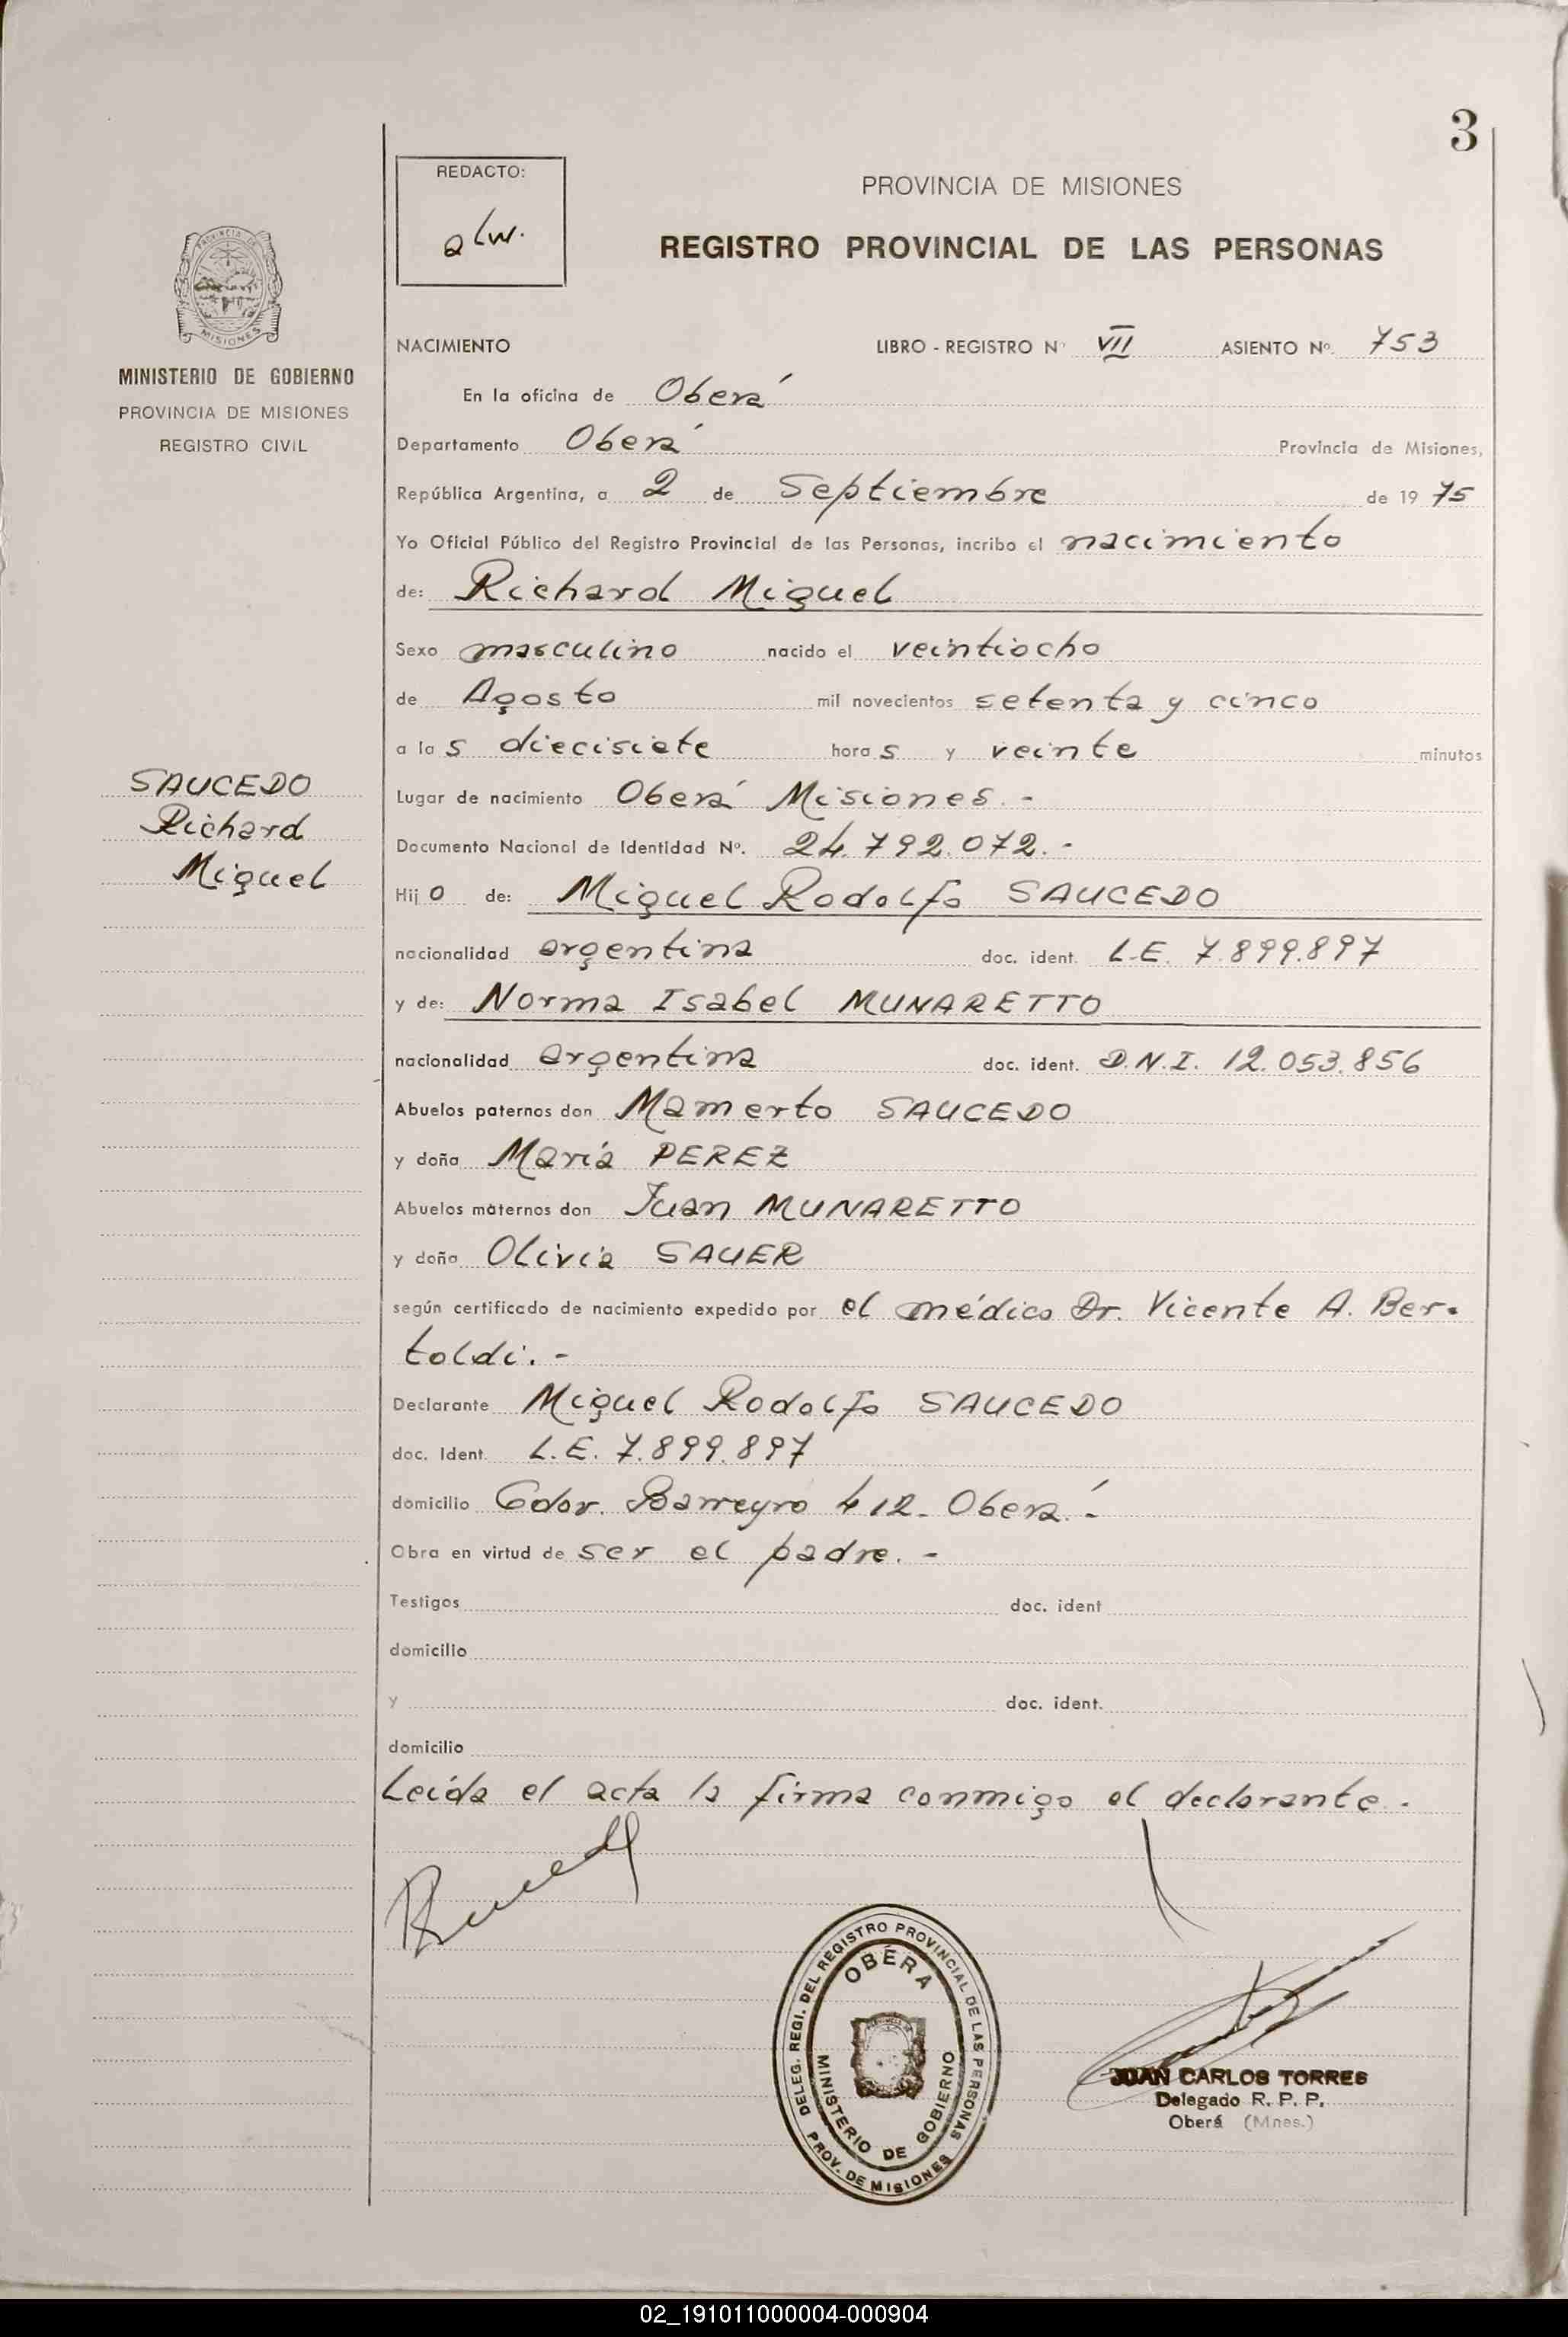 3
REDACTO:
alw.
PROVINCIA DE MISIONES
REGISTRO PROVINCIAL DE LAS PERSONAS
PROVINCIA DE
MISIONES
MINISTERIO DE GOBIERNO
PROVINCIA DE MISIONES
REGISTRO CIVIL
NACIMIENTO LIBRO - REGISTRO Nº VII ASIENTO Nº. 753
En la oficina de Oberá
Departamento Oberá Provincia de Misiones,
República Argentina, a 2 de Septiembre de 19 75
Yo Oficial Público del Registro Provincial de las Personas, incribo el nacimiento
de: Richard Miguel
Sexo masculino nacido el veintiocho
de Agosto mil novecientos setenta y cinco
a la s diecisiete hora s y veinte minutos
SAUCEDO
Richard
Miguel
Lugar de nacimiento Oberá Misiones. -
Documento Nacional de Identidad Nº. 24.792.072. -
Hij o de: Miguel Rodolfo SAUCEDO
nacionalidad argentina doc. ident. L.E. 7.899.897
y de: Norma Isabel MUNARETTO
nacionalidad argentina doc. ident. D.N.I. 12.053.856
Abuelos paternos don Mamerto SAUCEDO
y doña María PEREZ
Abuelos maternos don Juan MUNARETTO
y doña Olivia SAUER
según certificado de nacimiento expedido por el médico Dr. Vicente A. Ber-
toldi. -
Declarante Miguel Rodolfo SAUCEDO
doc. Ident. L.E. 7.899.897
domicilio Gdor. Barreyro 412. Oberá. -
Obra en virtud de ser el padre. -
Testigos doc. ident
domicilio
y doc. ident.
domicilio
Leída el acta la firma conmigo el declarante. -
DELEG. REGI. DEL REGISTRO PROVINCIAL DE LAS PERSONAS
PROV. DE MISIONES
OBERÁ
MINISTERIO DE GOBIERNO
JUAN CARLOS TORRES
Delegado R. P. P.
Oberá (Mnes.)
02_191011000004-000904